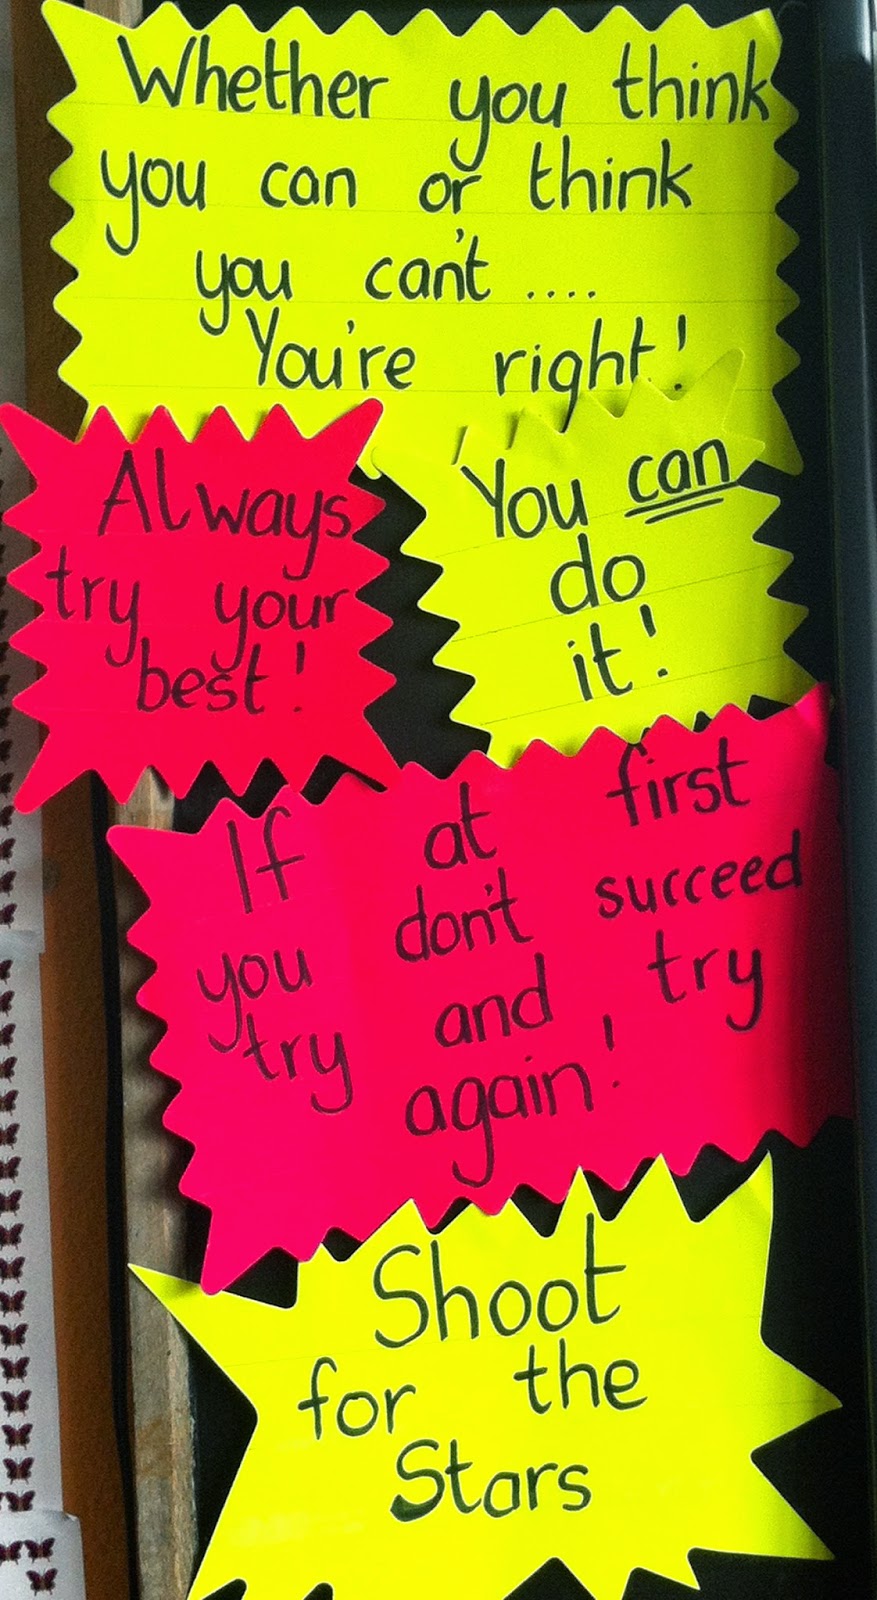 Whether you think
you can or think
you can't ....
You're right!
Always
try your
best!
You can
do
it!
If at first
you don't succeed
try and try
again!
Shoot
for the
Stars